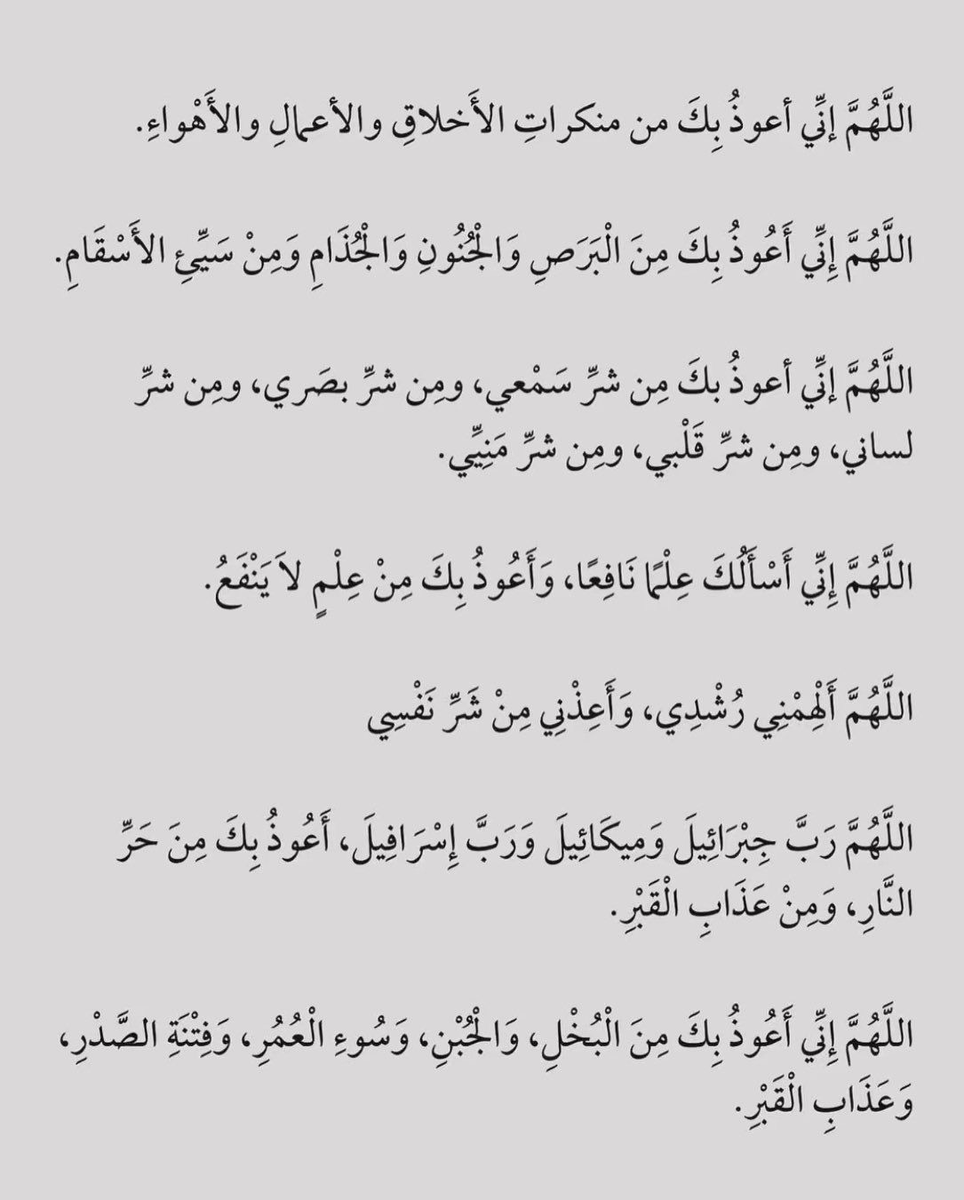 اللَّهُمَّ إنِّي أعوذُ بِكَ من منكراتِ الأَخلاقِ والأعمالِ والأَهْواءِ.
اللَّهُمَّ إِنِّي أَعُوذُ بِكَ مِنَ الْبَرَصِ وَالْجُنُونِ وَالْجُذَامِ وَمِنْ سَيِّئِ الأَسْقَامِ.
اللَّهُمَّ إنِّي أعوذُ بكَ مِن شرِّ سَمْعي، ومِن شرِّ بصَري، ومِن شرِّ
لساني، ومِن شرِّ قَلْبي، ومِن شرِّ مَنِيِّي.
اللَّهُمَّ إِنِّي أَسْأَلُكَ عِلْمًا نَافِعًا، وَأَعُوذُ بِكَ مِنْ عِلْمٍ لاَ يَنْفَعُ.
اللَّهُمَّ أَلْهِمْنِي رُشْدِي، وَأَعِذْنِي مِنْ شَرِّ نَفْسِي
اللَّهُمَّ رَبَّ جِبْرَائِيلَ وَمِيكَائِيلَ وَرَبَّ إِسْرَافِيلَ، أَعُوذُ بِكَ مِنَ حَرِّ
النَّارِ، وَمِنْ عَذَابِ الْقَبْرِ.
اللَّهُمَّ إِنِّي أَعُوذُ بِكَ مِنَ الْبُخْلِ، وَالْجُبْنِ، وَسُوءِ الْعُمُرِ، وَفِتْنَةِ الصَّدْرِ،
وَعَذَابِ الْقَبْرِ.